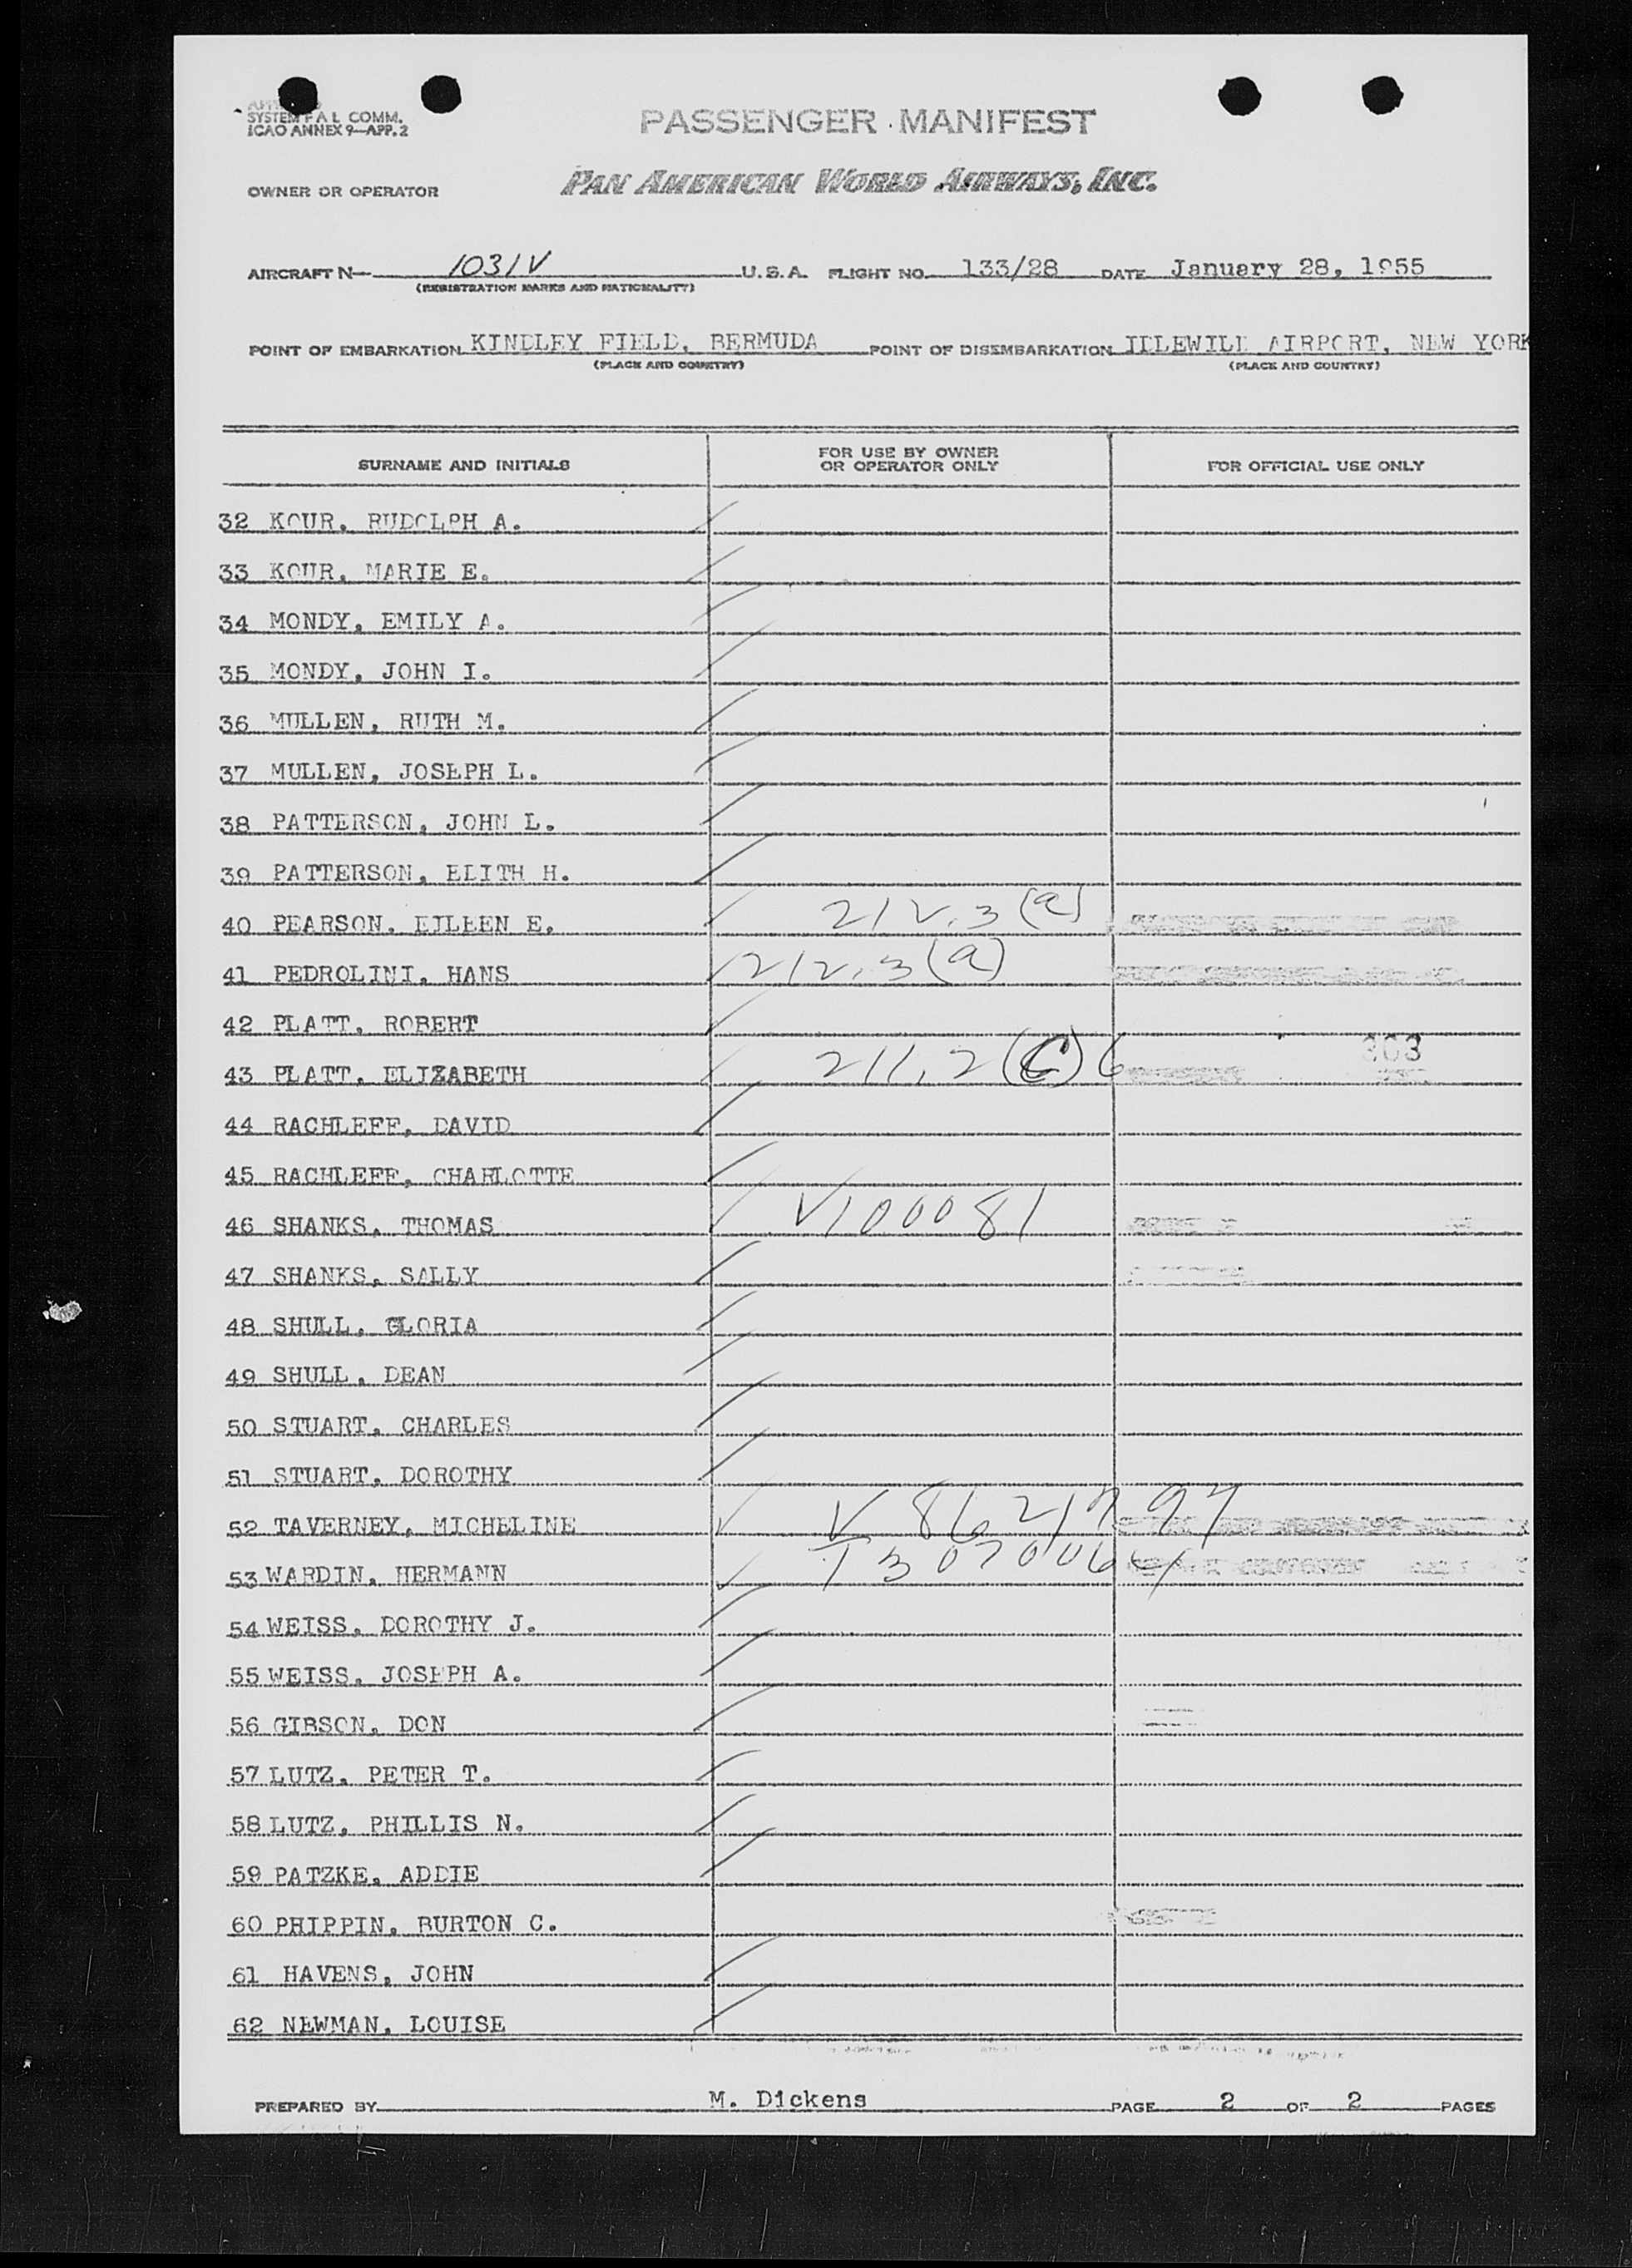 SYSTEM F A L COMM.
ICAO ANNEX 9—APP. 2
PASSENGER MANIFEST
OWNER OR OPERATOR PAN AMERICAN WORLD AIRWAYS, INC.
AIRCRAFT N— 1031V U.S.A. FLIGHT NO. 133/28 DATE January 28, 1955
(REGISTRATION MARKS AND NATIONALITY)
POINT OF EMBARKATION KINDLEY FIELD, BERMUDA POINT OF DISEMBARKATION IDLEWILD AIRPORT, NEW YORK
(PLACE AND COUNTRY) (PLACE AND COUNTRY)
SURNAME AND INITIALS FOR USE BY OWNER OR OPERATOR ONLY FOR OFFICIAL USE ONLY
32 KOUR, RUDOLPH A.
33 KOUR, MARIE E.
34 MONDY, EMILY A.
35 MONDY, JOHN I.
36 MULLEN, RUTH M.
37 MULLEN, JOSEPH L.
38 PATTERSON, JOHN L.
39 PATTERSON, EDITH H.
40 PEARSON, EILEEN E. 212.3(a)
41 PEDROLINI, HANS 212.3(a)
42 PLATT, ROBERT
43 PLATT, ELIZABETH 211.2(C)6 303
44 RACHLEFF, DAVID
45 RACHLEFF, CHARLOTTE
46 SHANKS, THOMAS V100081
47 SHANKS, SALLY
48 SHULL, GLORIA
49 SHULL, DEAN
50 STUART, CHARLES
51 STUART, DOROTHY
52 TAVERNEY, MICHELINE V
53 WARDIN, HERMANN
54 WEISS, DOROTHY J.
55 WEISS, JOSEPH A.
56 GIBSON, DON
57 LUTZ, PETER T.
58 LUTZ, PHILLIS N.
59 PATZKE, ADDIE
60 PHIPPIN, BURTON C.
61 HAVENS, JOHN
62 NEWMAN, LOUISE
PREPARED BY M. Dickens PAGE 2 OF 2 PAGES